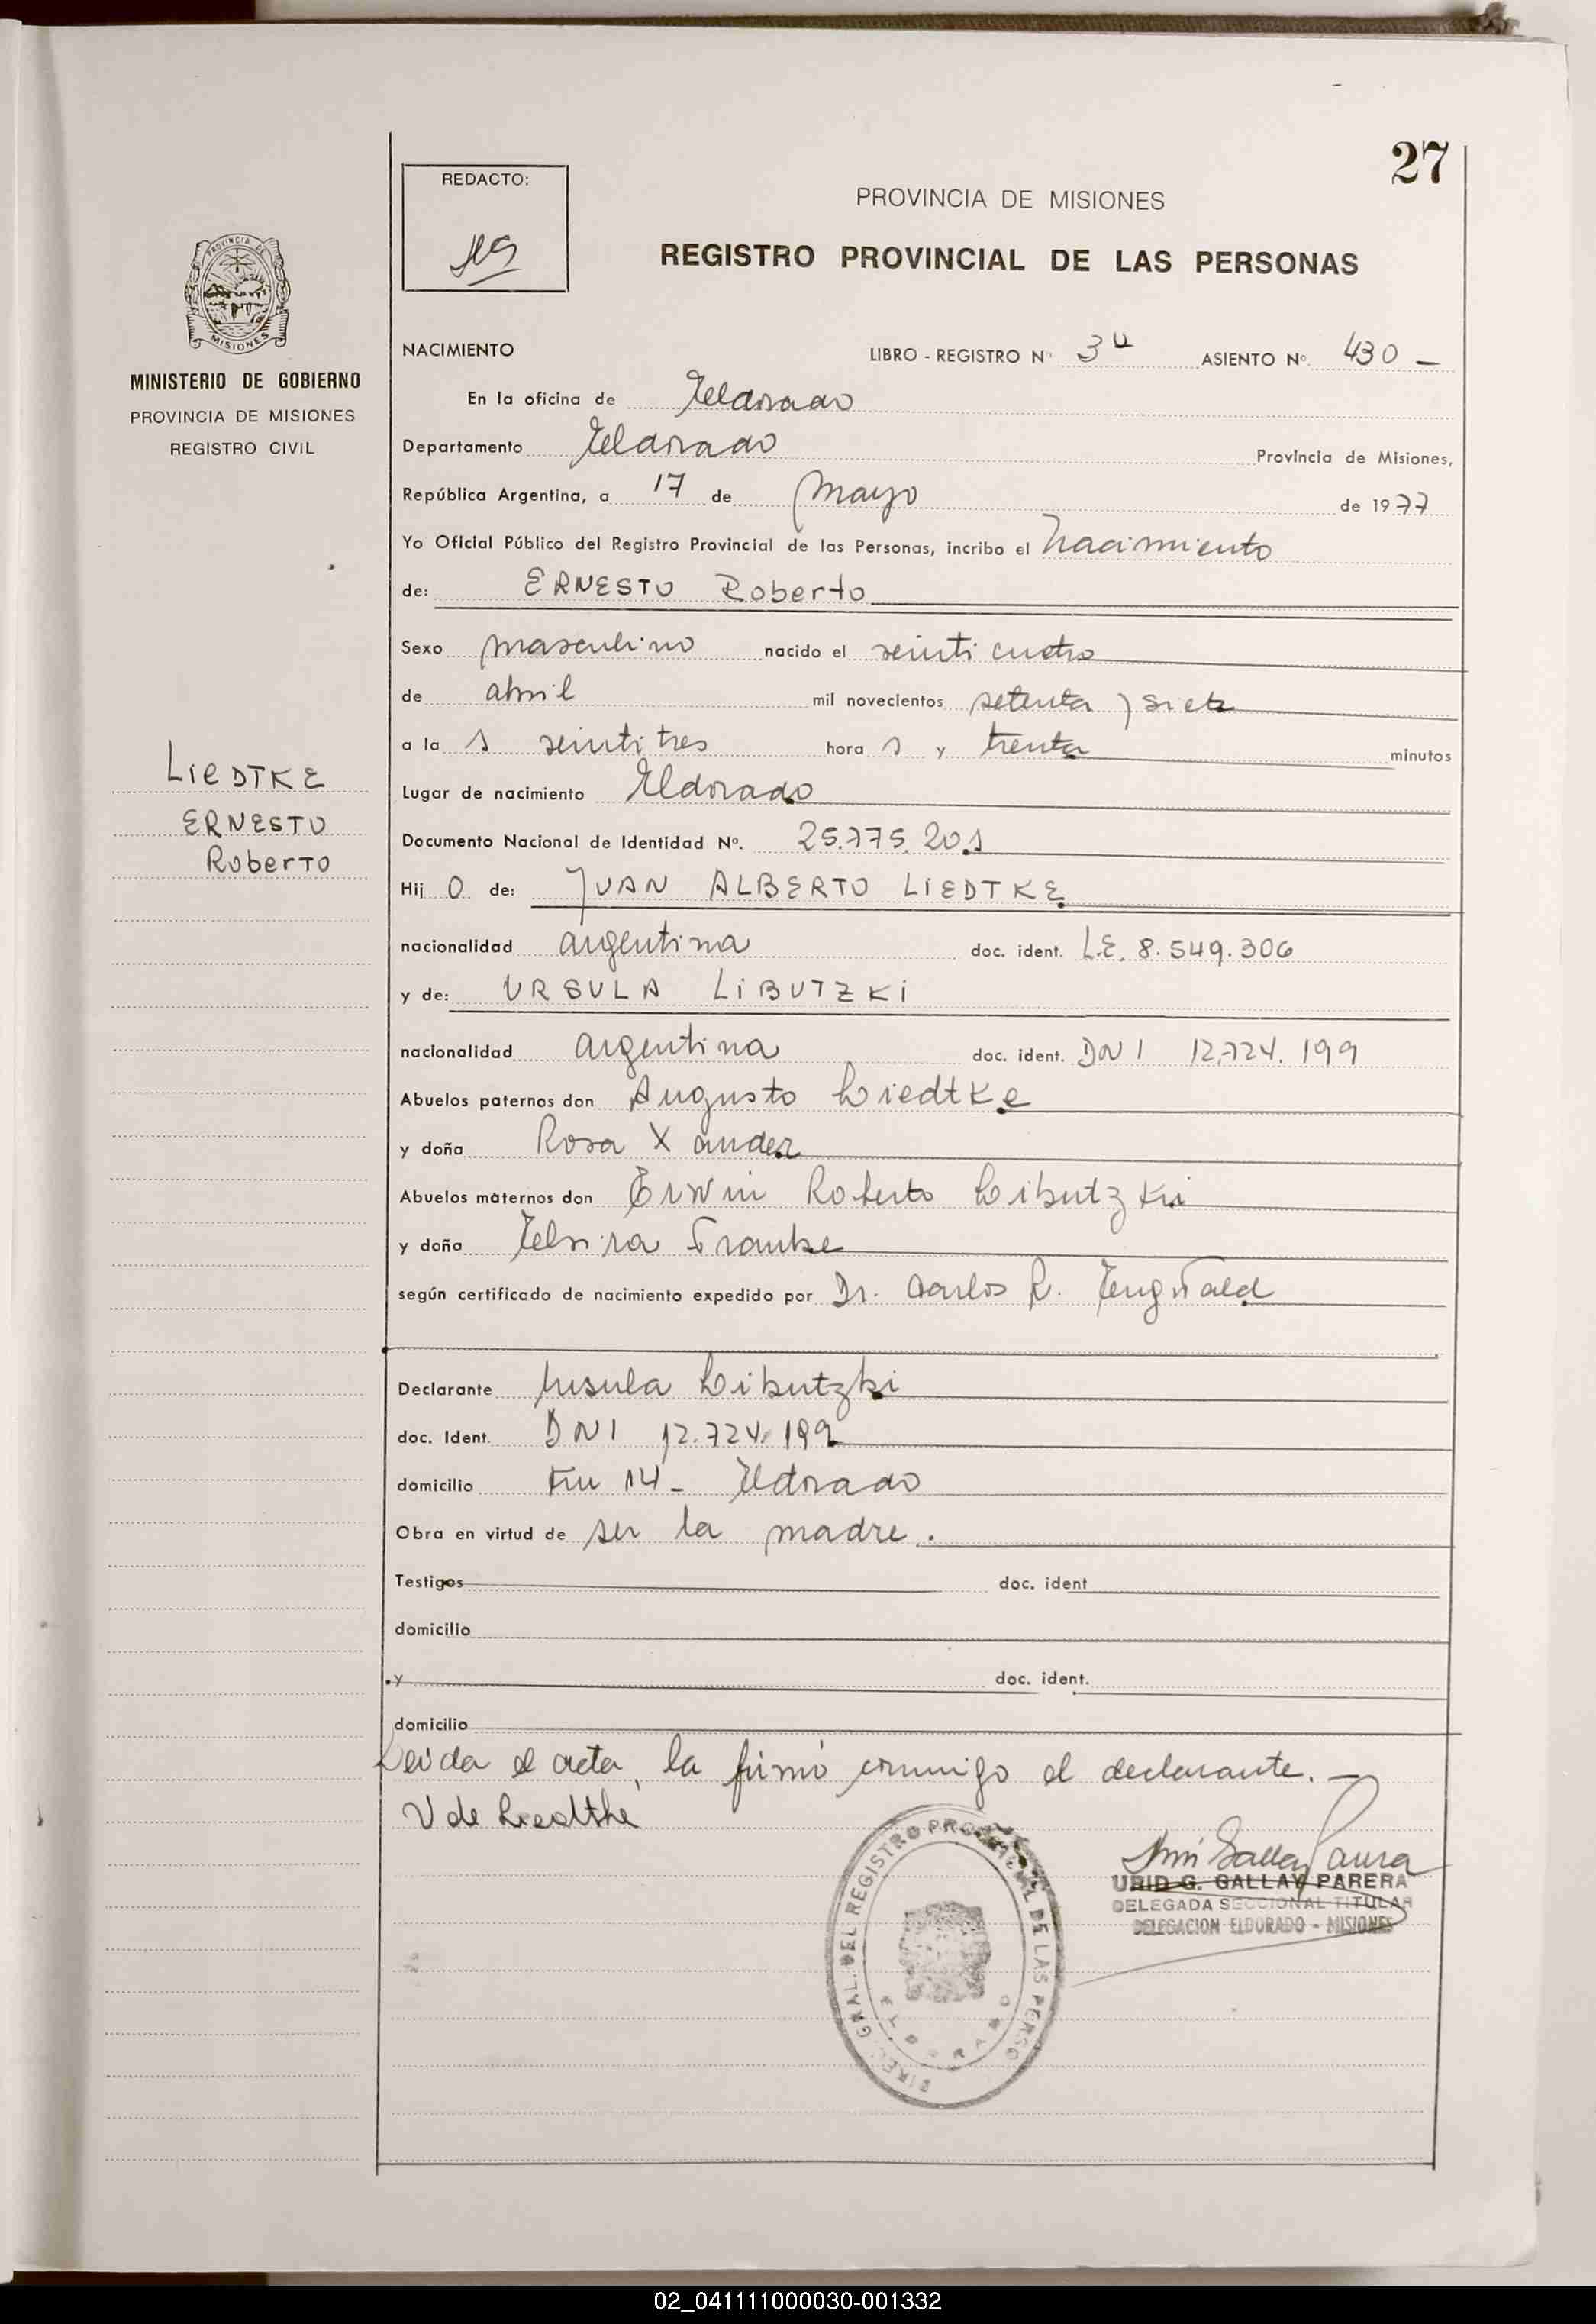 27
REDACTO:
PROVINCIA DE MISIONES
REGISTRO PROVINCIAL DE LAS PERSONAS
PROVINCIA DE
MISIONES
MINISTERIO DE GOBIERNO
PROVINCIA DE MISIONES
REGISTRO CIVIL
NACIMIENTO LIBRO - REGISTRO Nº 3º ASIENTO Nº. 430 -
En la oficina de Eldorado
Departamento Eldorado Provincia de Misiones,
República Argentina, a 17 de Mayo de 1977
Yo Oficial Público del Registro Provincial de las Personas, incribo el Nacimiento
de: ERNESTO Roberto
Sexo masculino nacido el veinticuatro
de abril mil novecientos setenta y siete
a la s veintitres hora s y treinta minutos
LIEDTKE
ERNESTO
Roberto
Lugar de nacimiento Eldorado
Documento Nacional de Identidad Nº. 25.775.201
Hij O de: JUAN ALBERTO LIEDTKE
nacionalidad argentina doc. ident. L.E. 8.549.306
y de: URSULA LIBUTZKI
nacionalidad argentina doc. ident. DNI 12.724.199
Abuelos paternos don Augusto Liedtke
y doña Rosa Xander
Abuelos maternos don Erwin Roberto Libutzki
y doña Elvira Franke
según certificado de nacimiento expedido por Dr. Carlos R.
Declarante Ursula Libutzki
doc. Ident. DNI 12.724.199
domicilio Km 14 - Eldorado
Obra en virtud de ser la madre.
Testigos doc. ident
domicilio
y doc. ident.
domicilio
Leída el acta, la firmó conmigo el declarante. -
U de Liedtke
DIREC. GRAL. DEL REGISTRO PROVINCIAL DE LAS PERSO
ELDORADO
URID G. GALLAY PARERA
DELEGADA SECCIONAL TITULAR
DELEGACION ELDORADO - MISIONES
02_041111000030-001332